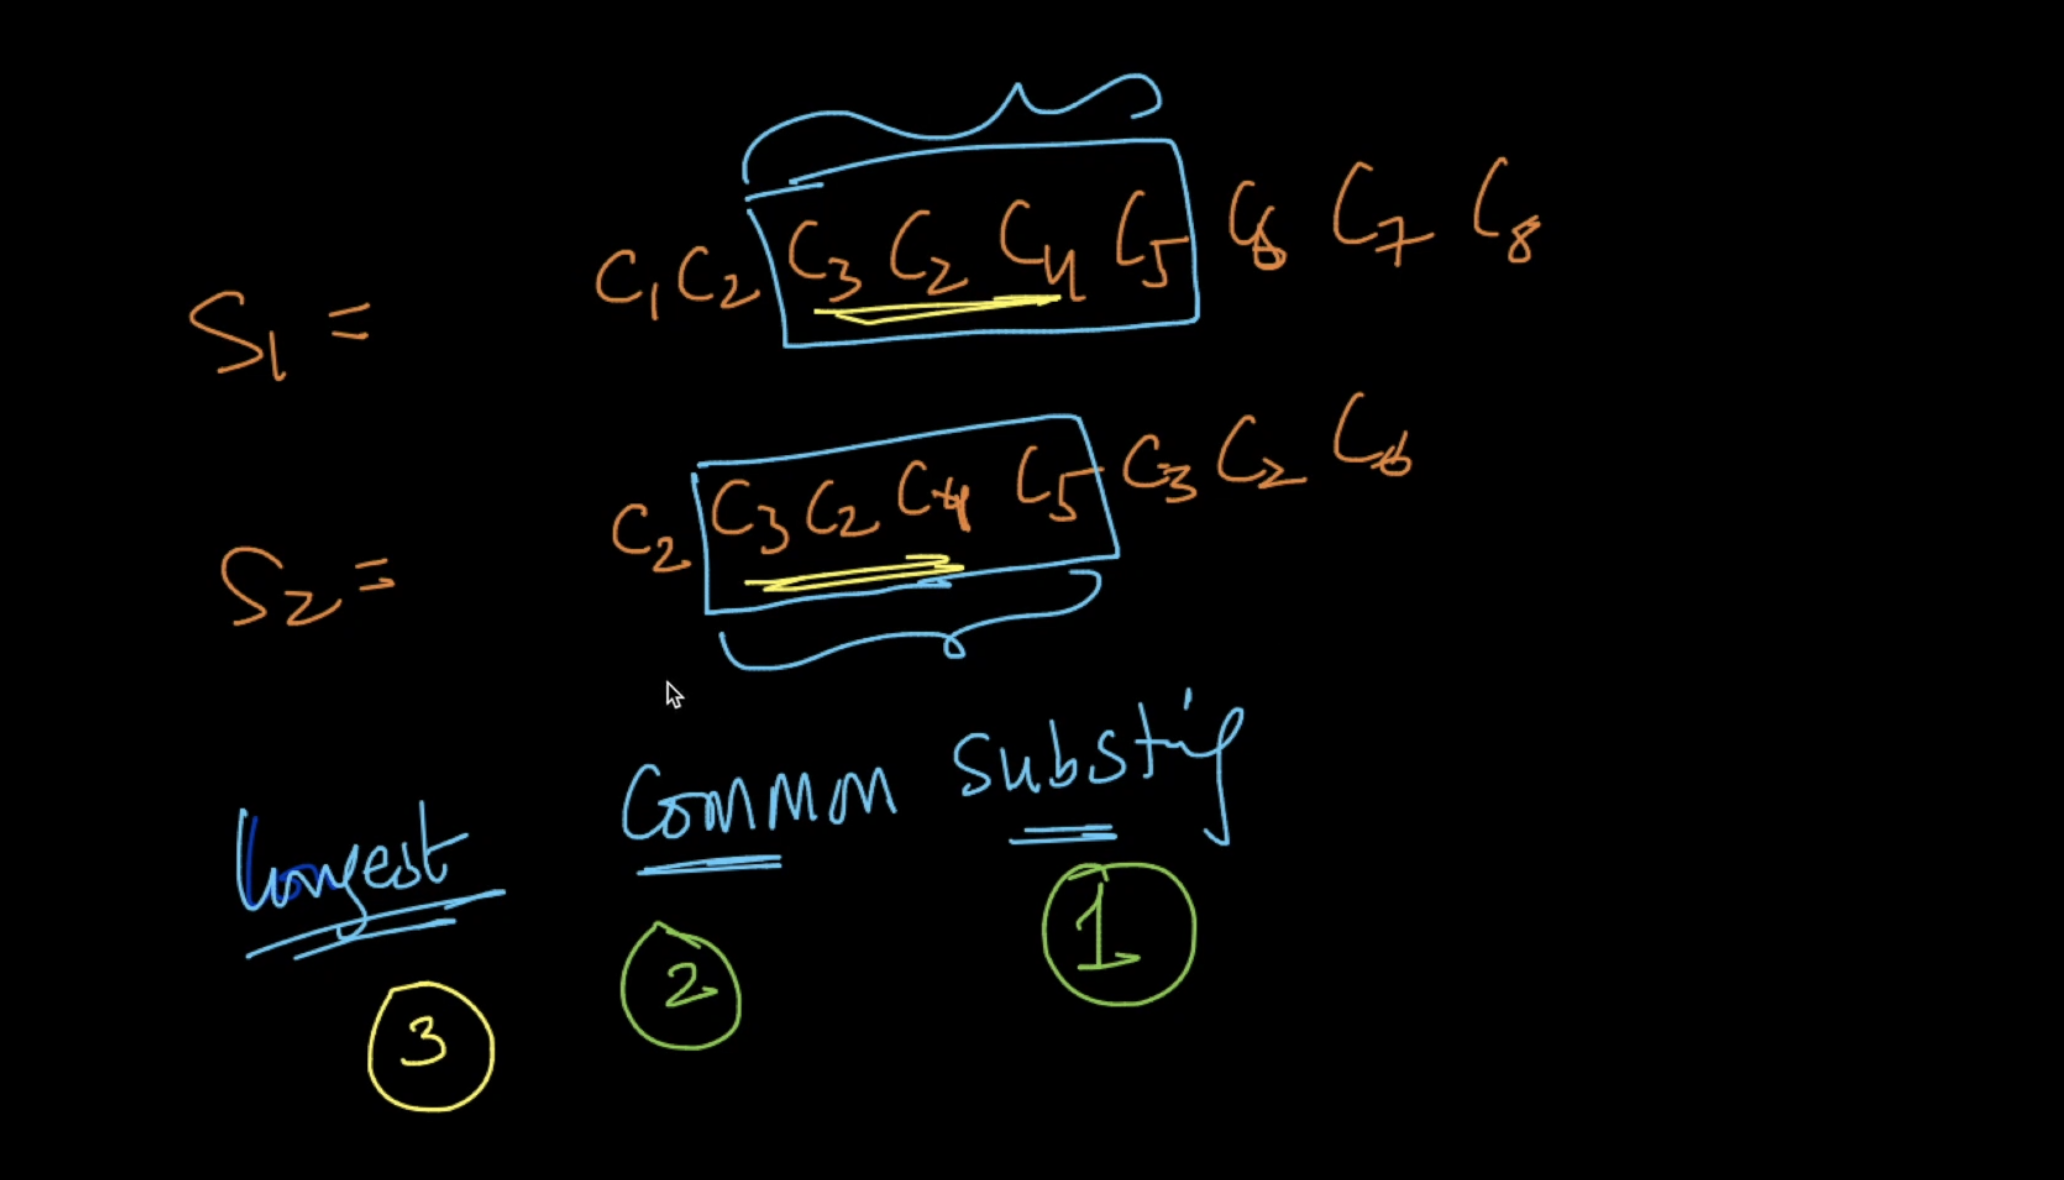 S1 = C1 C2 C3 C2 C4 C5 C6 C7 C8
S2 = C2 C3 C2 C4 C5 C3 C2 C6
Longest Common Substring
3 2 1